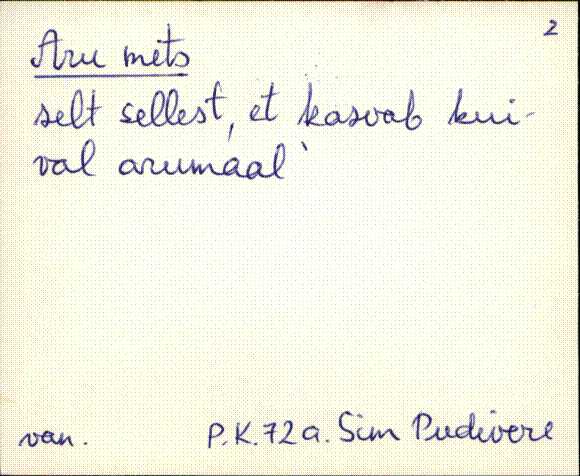 2
Aru mets
selt sellest, et kasvab kui-
val arumaal'
van. P.K. 72 a. Sim Pudivere